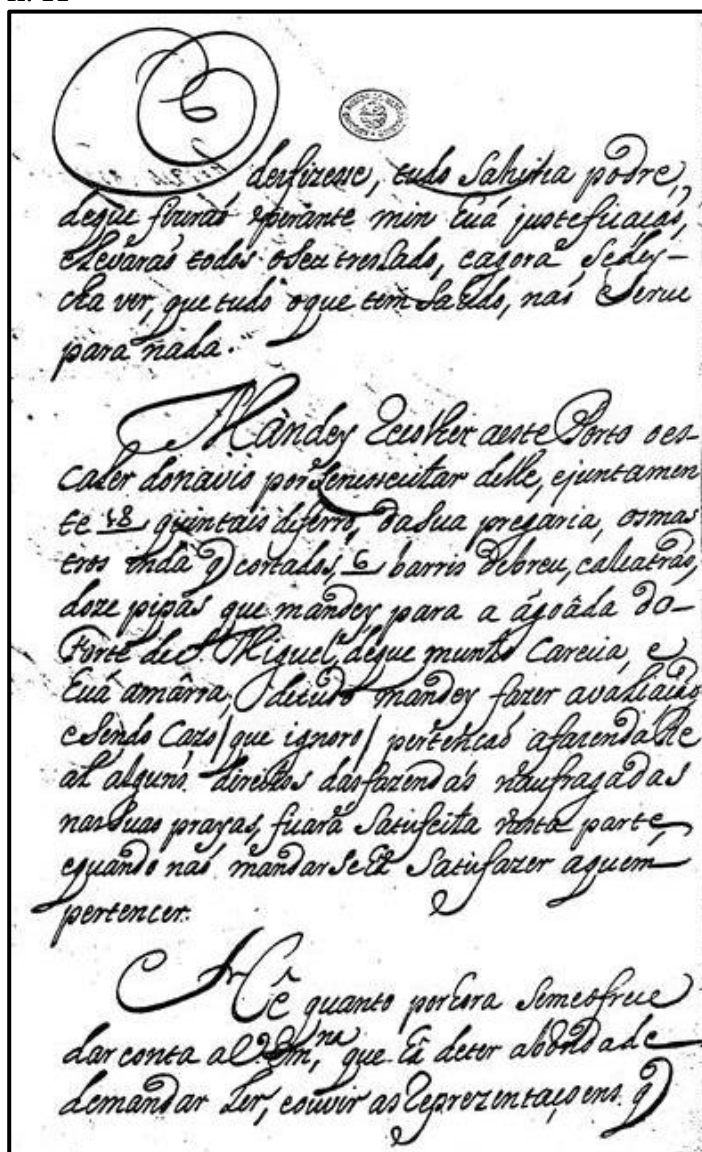 desfizesse, tudo sahiria podre,
deque fizeraõ perante mim huã justeficaçaõ,
elevaraõ todos oseu treslado, eagora sedey-
cha ver, que tudo oque tem sahido, naõ serve
para nada.
Mandey recolher aeste Porto oes-
caler donavio por senessecitar delle, ejuntamen
te 48 quintais deferro, dasua pregaria, osmas
tros inda q cortados, 6 barris debreu, ealcatraõ,
doze pipas que mandey para a ágoàda do-
Forte de S. Miguel, deque munto carecia, e
huã amàrra; detudo mandey fazer avaliaçaõ,
esendo cazo / que ignoro / pertençaõ afazenda Re
al alguns direitos dasfazendas naufragadas
nasSuas prayas, ficarà satisfeita nesta parte,
equando naõ mandarseha satisfazer aquem
pertencer.
Hê quanto porhora semeofrece
dar conta a VEm,cia que hà deter abondade
demandar ler, eouvir as reprezentaçoens q